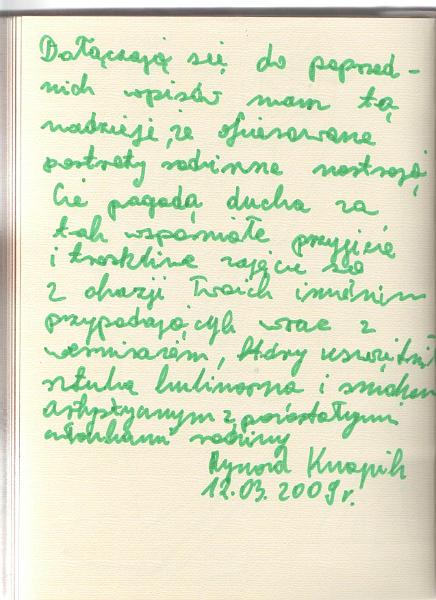 Dołączają się do poprzed-
nich wpisów mam tą
nadzieję, że ofiarowane
portrety rodzinne nastroją
Cię pogodą ducha za
tak wspaniałe przyjęcie
i troskliwe zajęcie się
z okazji Twoich imienin
przypadających wraz z
wernisażem, który uświetnił
sztuką kulinarną i smakiem
artystycznym z pozostałymi
członkami rodziny
Ryszard Knapik
12.03.2009 r.